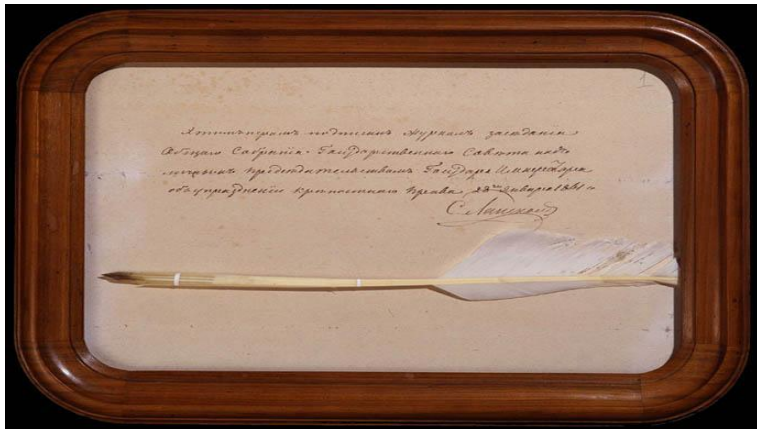 1
Этимъ перомъ подписанъ журналъ заседанія
Общаго Собранія Государственнаго Совѣта подъ
личнымъ предсѣдательствомъ Государя Императора
объ упраздненіи крѣпостнаго права 28го января 1861 г.
С. Ланской